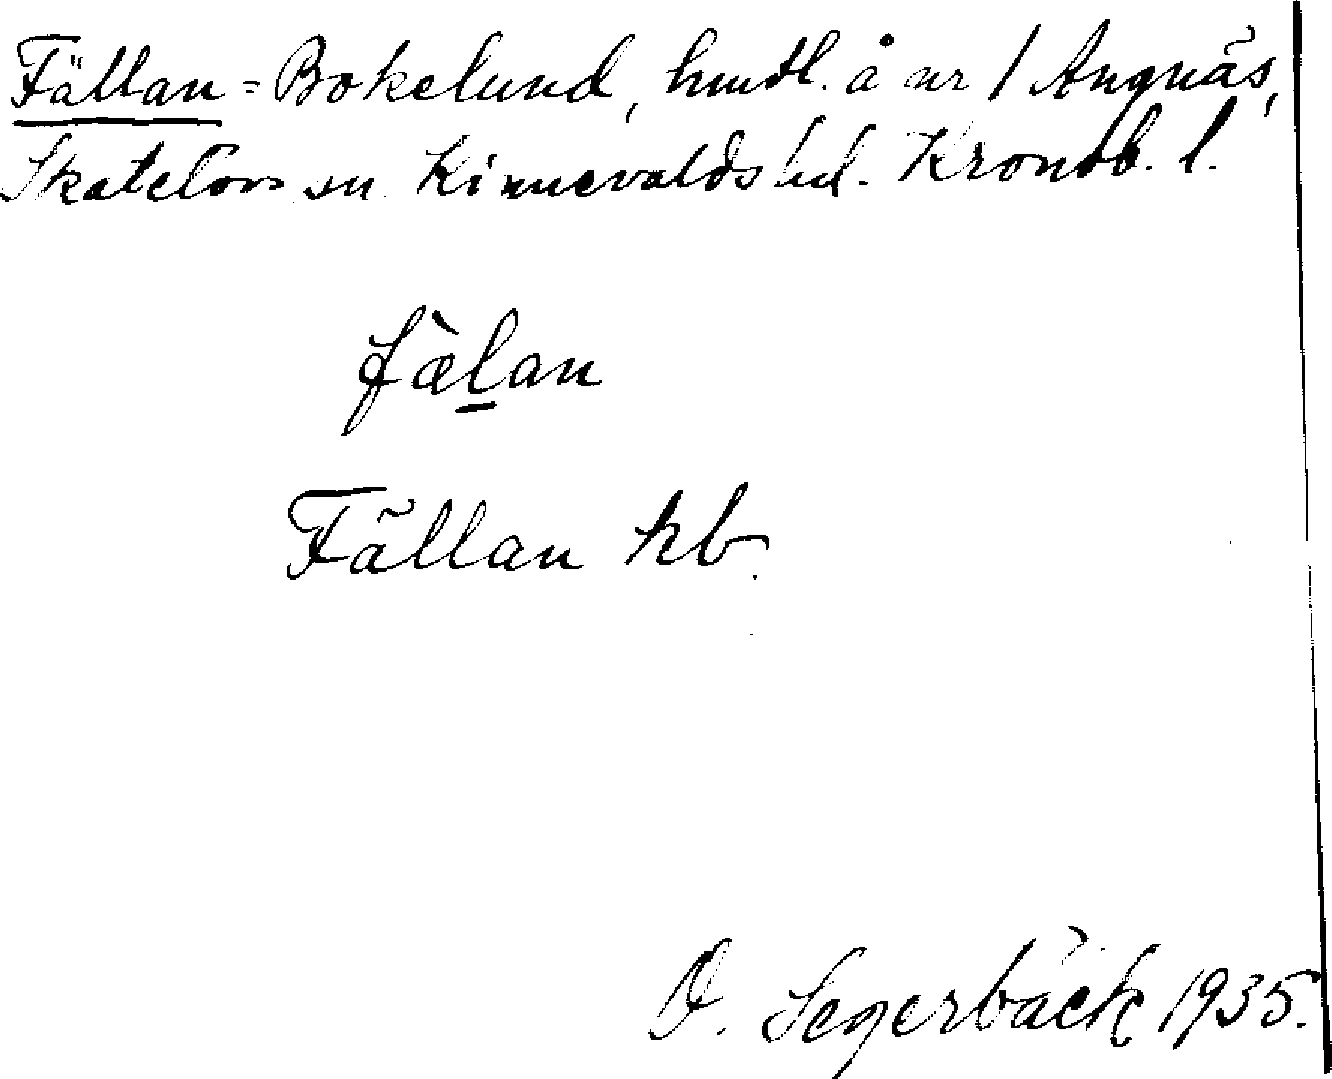 Fällan-Bokelund, hmdl. å nr 1 Angnäs,
Skatelövs sn. Kinnevalds hd. Kronob. l.
fä̀lan
Fällan kb.
D. Segerbäck 1935.